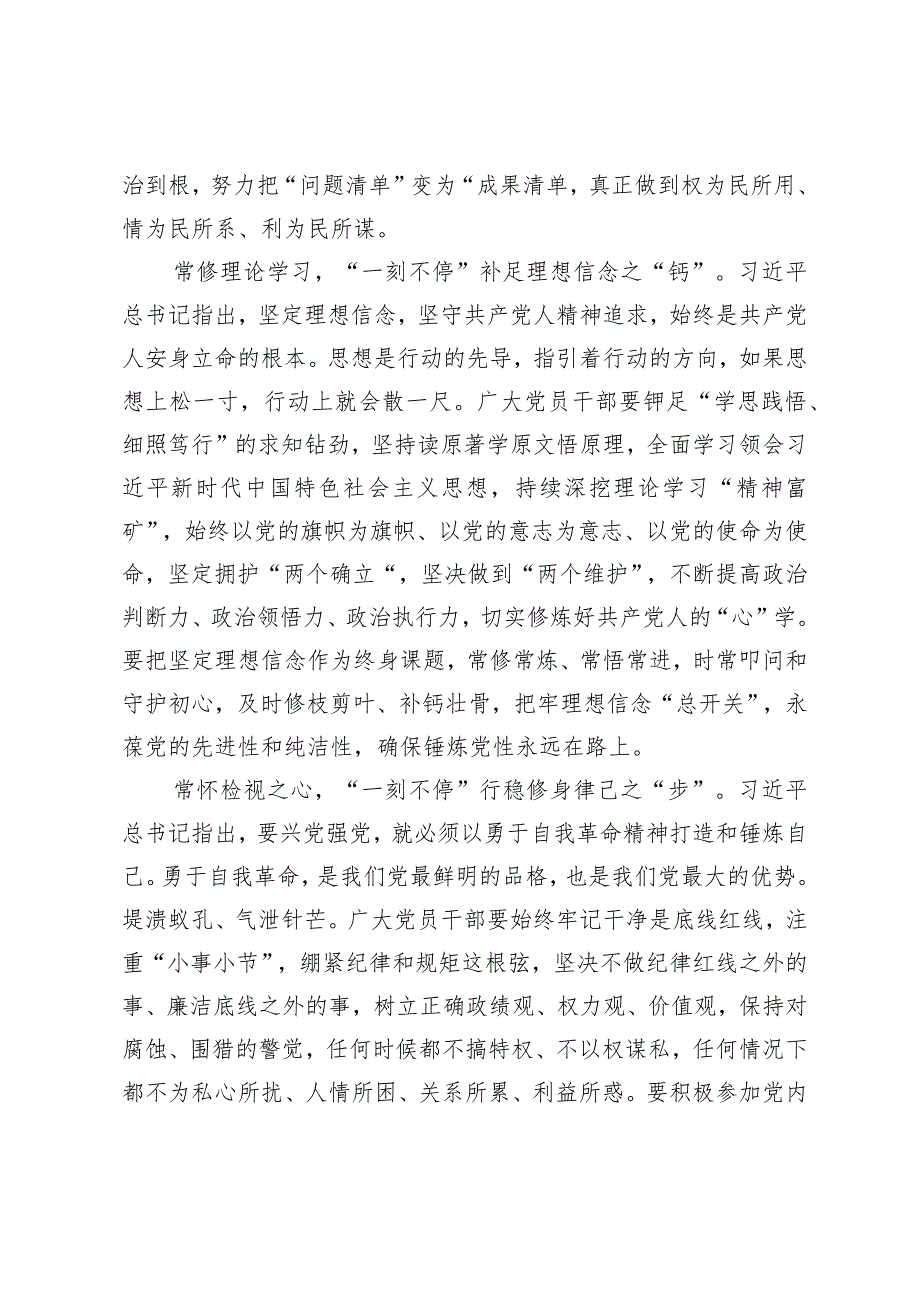 治到根，努力把“问题清单”变为“成果清单，真正做到权为民所用、
情为民所系、利为民所谋。
常修理论学习，“一刻不停”补足理想信念之“钙”。习近平
总书记指出，坚定理想信念，坚守共产党人精神追求，始终是共产党
人安身立命的根本。思想是行动的先导，指引着行动的方向，如果思
想上松一寸，行动上就会散一尺。广大党员干部要钾足“学思践悟、
细照笃行”的求知钻劲，坚持读原著学原文悟原理，全面学习领会习
近平新时代中国特色社会主义思想，持续深挖理论学习“精神富
矿”，始终以党的旗帜为旗帜、以党的意志为意志、以党的使命为使
命，坚定拥护“两个确立“，坚决做到“两个维护”，不断提高政治
判断力、政治领悟力、政治执行力，切实修炼好共产党人的“心”学。
要把坚定理想信念作为终身课题，常修常炼、常悟常进，时常叩问和
守护初心，及时修枝剪叶、补钙壮骨，把牢理想信念“总开关”，永
葆党的先进性和纯洁性，确保锤炼党性永远在路上。
常怀检视之心，“一刻不停”行稳修身律己之“步”。习近平
总书记指出，要兴党强党，就必须以勇于自我革命精神打造和锤炼自
己。勇于自我革命，是我们党最鲜明的品格，也是我们党最大的优势。
堤溃蚁孔、气泄针芒。广大党员干部要始终牢记干净是底线红线，注
重“小事小节”，绷紧纪律和规矩这根弦，坚决不做纪律红线之外的
事、廉洁底线之外的事，树立正确政绩观、权力观、价值观，保持对
腐蚀、围猎的警觉，任何时候都不搞特权、不以权谋私，任何情况下
都不为私心所扰、人情所困、关系所累、利益所惑。要积极参加党内